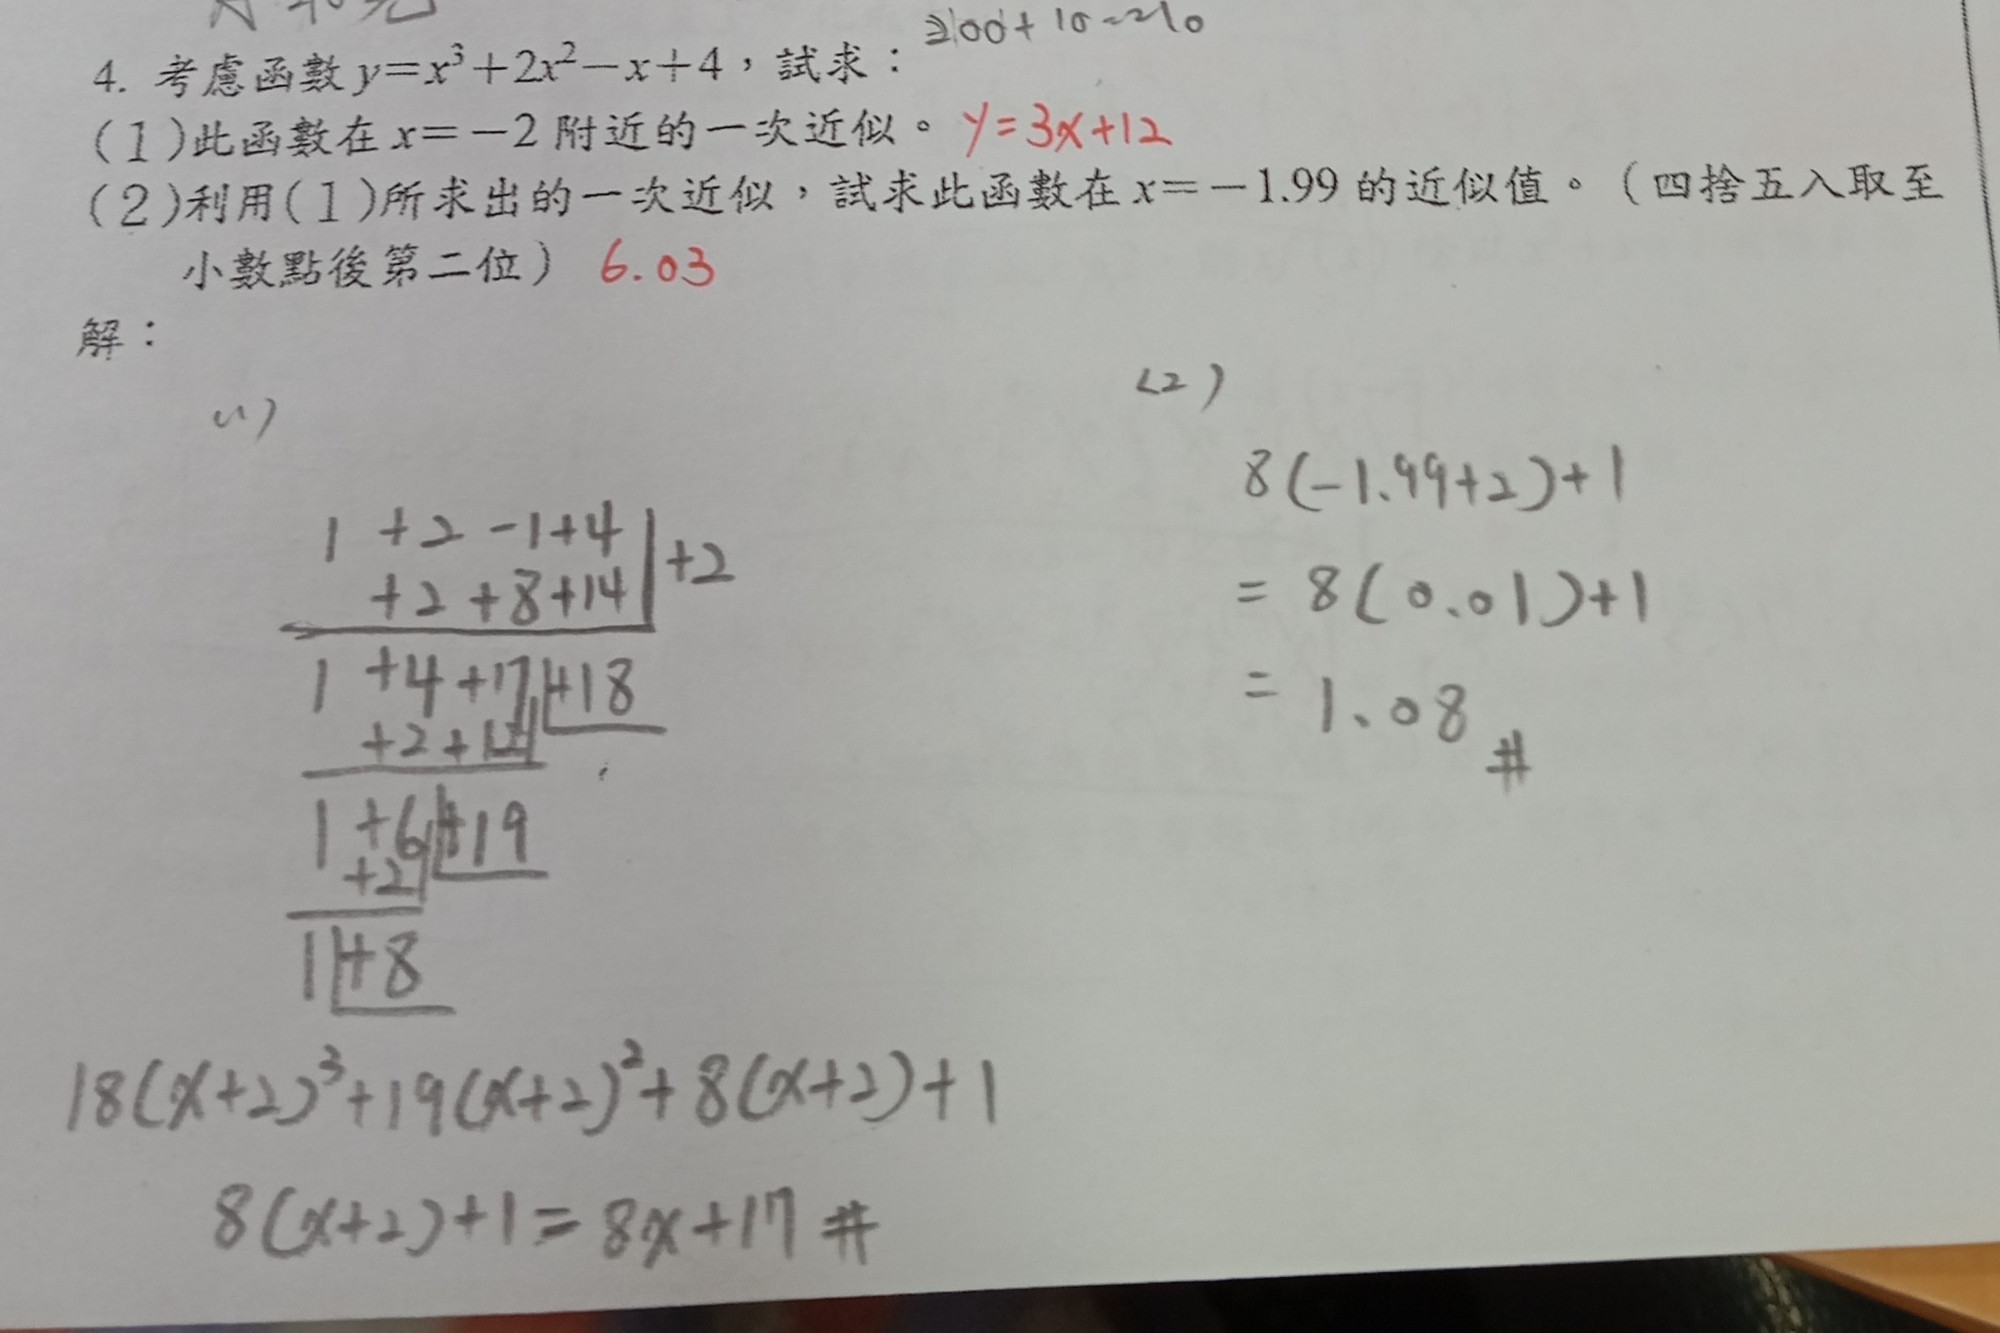 200+10=210
4. 考慮函數 y=x³+2x²−x+4，試求：
(1)此函數在 x=−2 附近的一次近似。 y=3x+12
(2)利用(1)所求出的一次近似，試求此函數在 x=−1.99 的近似值。（四捨五入取至
小數點後第二位） 6.03
解：
(1)
1 +2 -1+4 | +2
+2 +8+14
1 +4 +17 +18
+2+12
1 +6 +19
+2
1 +8
18(x+2)³+19(x+2)²+8(x+2)+1
8(x+2)+1=8x+17 #
(2)
8(-1.99+2)+1
= 8(0.01)+1
= 1.08 #